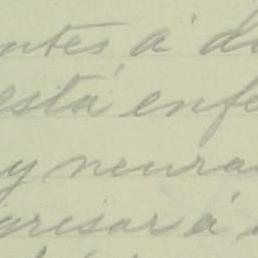 ntes á d
está enfe
y neura
gresar á